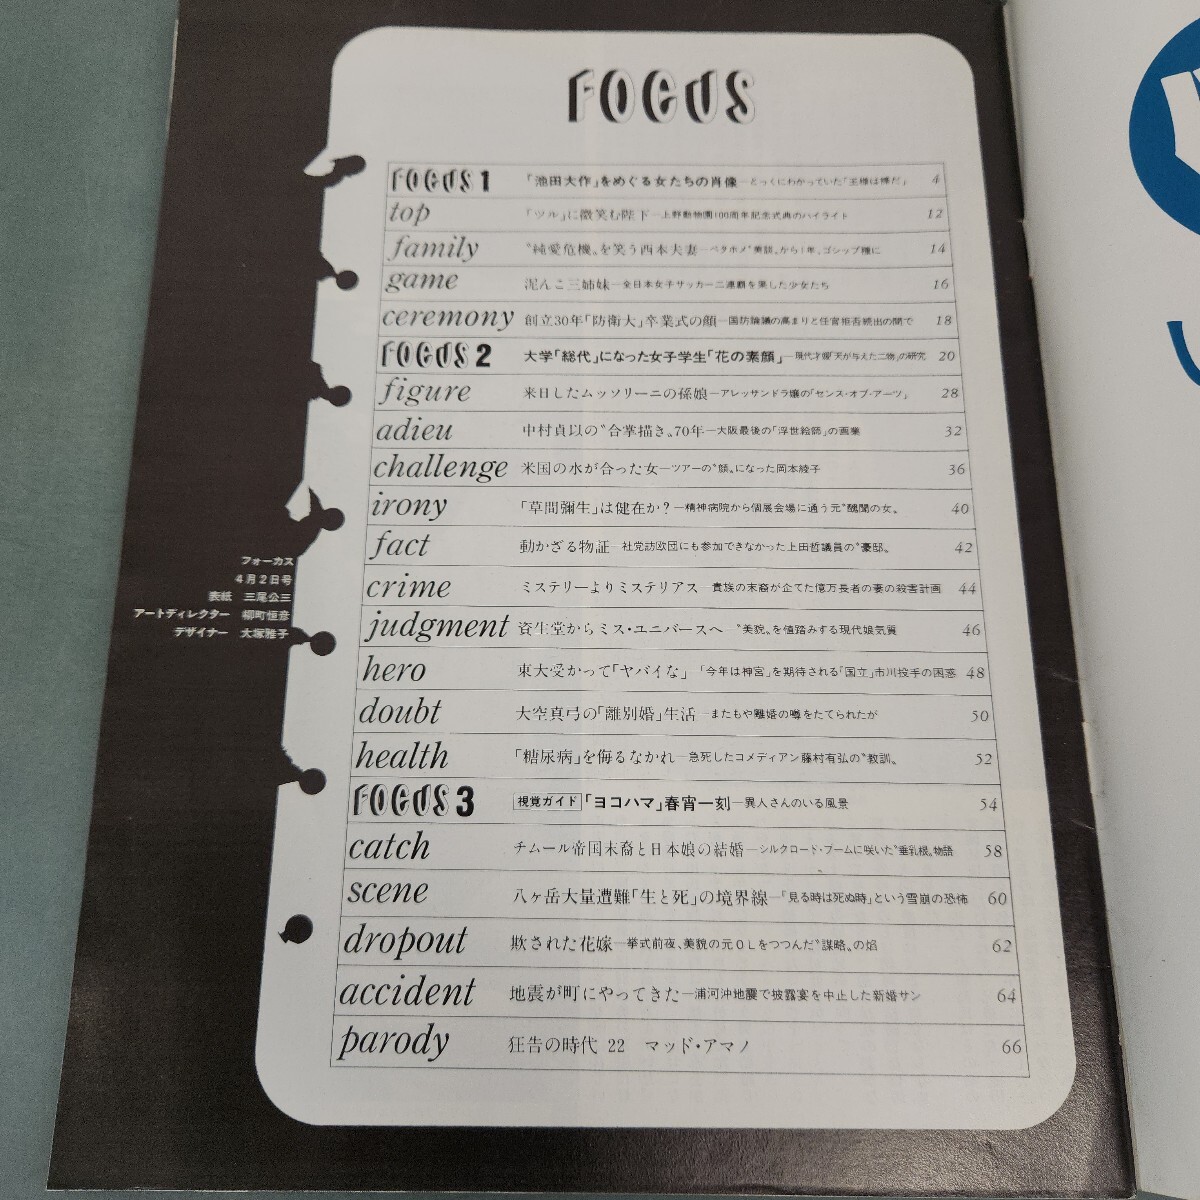 FOCUS
FOCUS 1 「池田大作」をめぐる女たちの肖像―とっくにわかっていた「王様は裸だ」 4
top 「ツル」に微笑む陛下―上野動物園100周年記念式典のハイライト 12
family 〝純愛危機〟を笑う西本夫妻―ベタホメ〝美談〟から1年、ゴシップ種に 14
game 泥んこ三姉妹―全日本女子サッカー二連覇を果した少女たち 16
ceremony 創立30年「防衛大」卒業式の顔―国防論議の高まりと任官拒否続出の間で 18
FOCUS 2 大学「総代」になった女子学生「花の素顔」―現代才媛「天が与えた二物」の研究 20
figure 来日したムッソリーニの孫娘―アレッサンドラ嬢の「センス・オブ・アーツ」 28
adieu 中村貞以の〝合掌描き〟70年―大阪最後の「浮世絵師」の画業 32
challenge 米国の水が合った女―ツアーの〝顔〟になった岡本綾子 36
irony 「草間彌生」は健在か?―精神病院から個展会場に通う元〝醜聞の女〟 40
fact 動かざる物証―社党訪欧団にも参加できなかった上田哲議員の〝豪邸〟 42
crime ミステリーよりミステリアス―貴族の末裔が企てた億万長者の妻の殺害計画 44
judgment 資生堂からミス・ユニバースへ―〝美貌〟を値踏みする現代娘気質 46
hero 東大受かって「ヤバイな」―「今年は神宮」を期待される「国立」市川投手の困惑 48
doubt 大空真弓の「離別婚」生活―またもや離婚の噂をたてられたが 50
health 「糖尿病」を侮るなかれ―急死したコメディアン藤村有弘の〝教訓〟 52
FOCUS 3 視覚ガイド 「ヨコハマ」春宵一刻―異人さんのいる風景 54
catch チムール帝国末裔と日本娘の結婚―シルクロード・ブームに咲いた〝垂乳根〟物語 58
scene 八ヶ岳大量遭難「生と死」の境界線―「見る時は死ぬ時」という雪崩の恐怖 60
dropout 欺された花嫁―挙式前夜、美貌の元OLをつつんだ〝謀略〟の焰 62
accident 地震が町にやってきた―浦河沖地震で披露宴を中止した新婚サン 64
parody 狂告の時代 22 マッド・アマノ 66
フォーカス
4月2日号
表紙 三尾公三
アートディレクター 柳町恒彦
デザイナー 大塚雅子